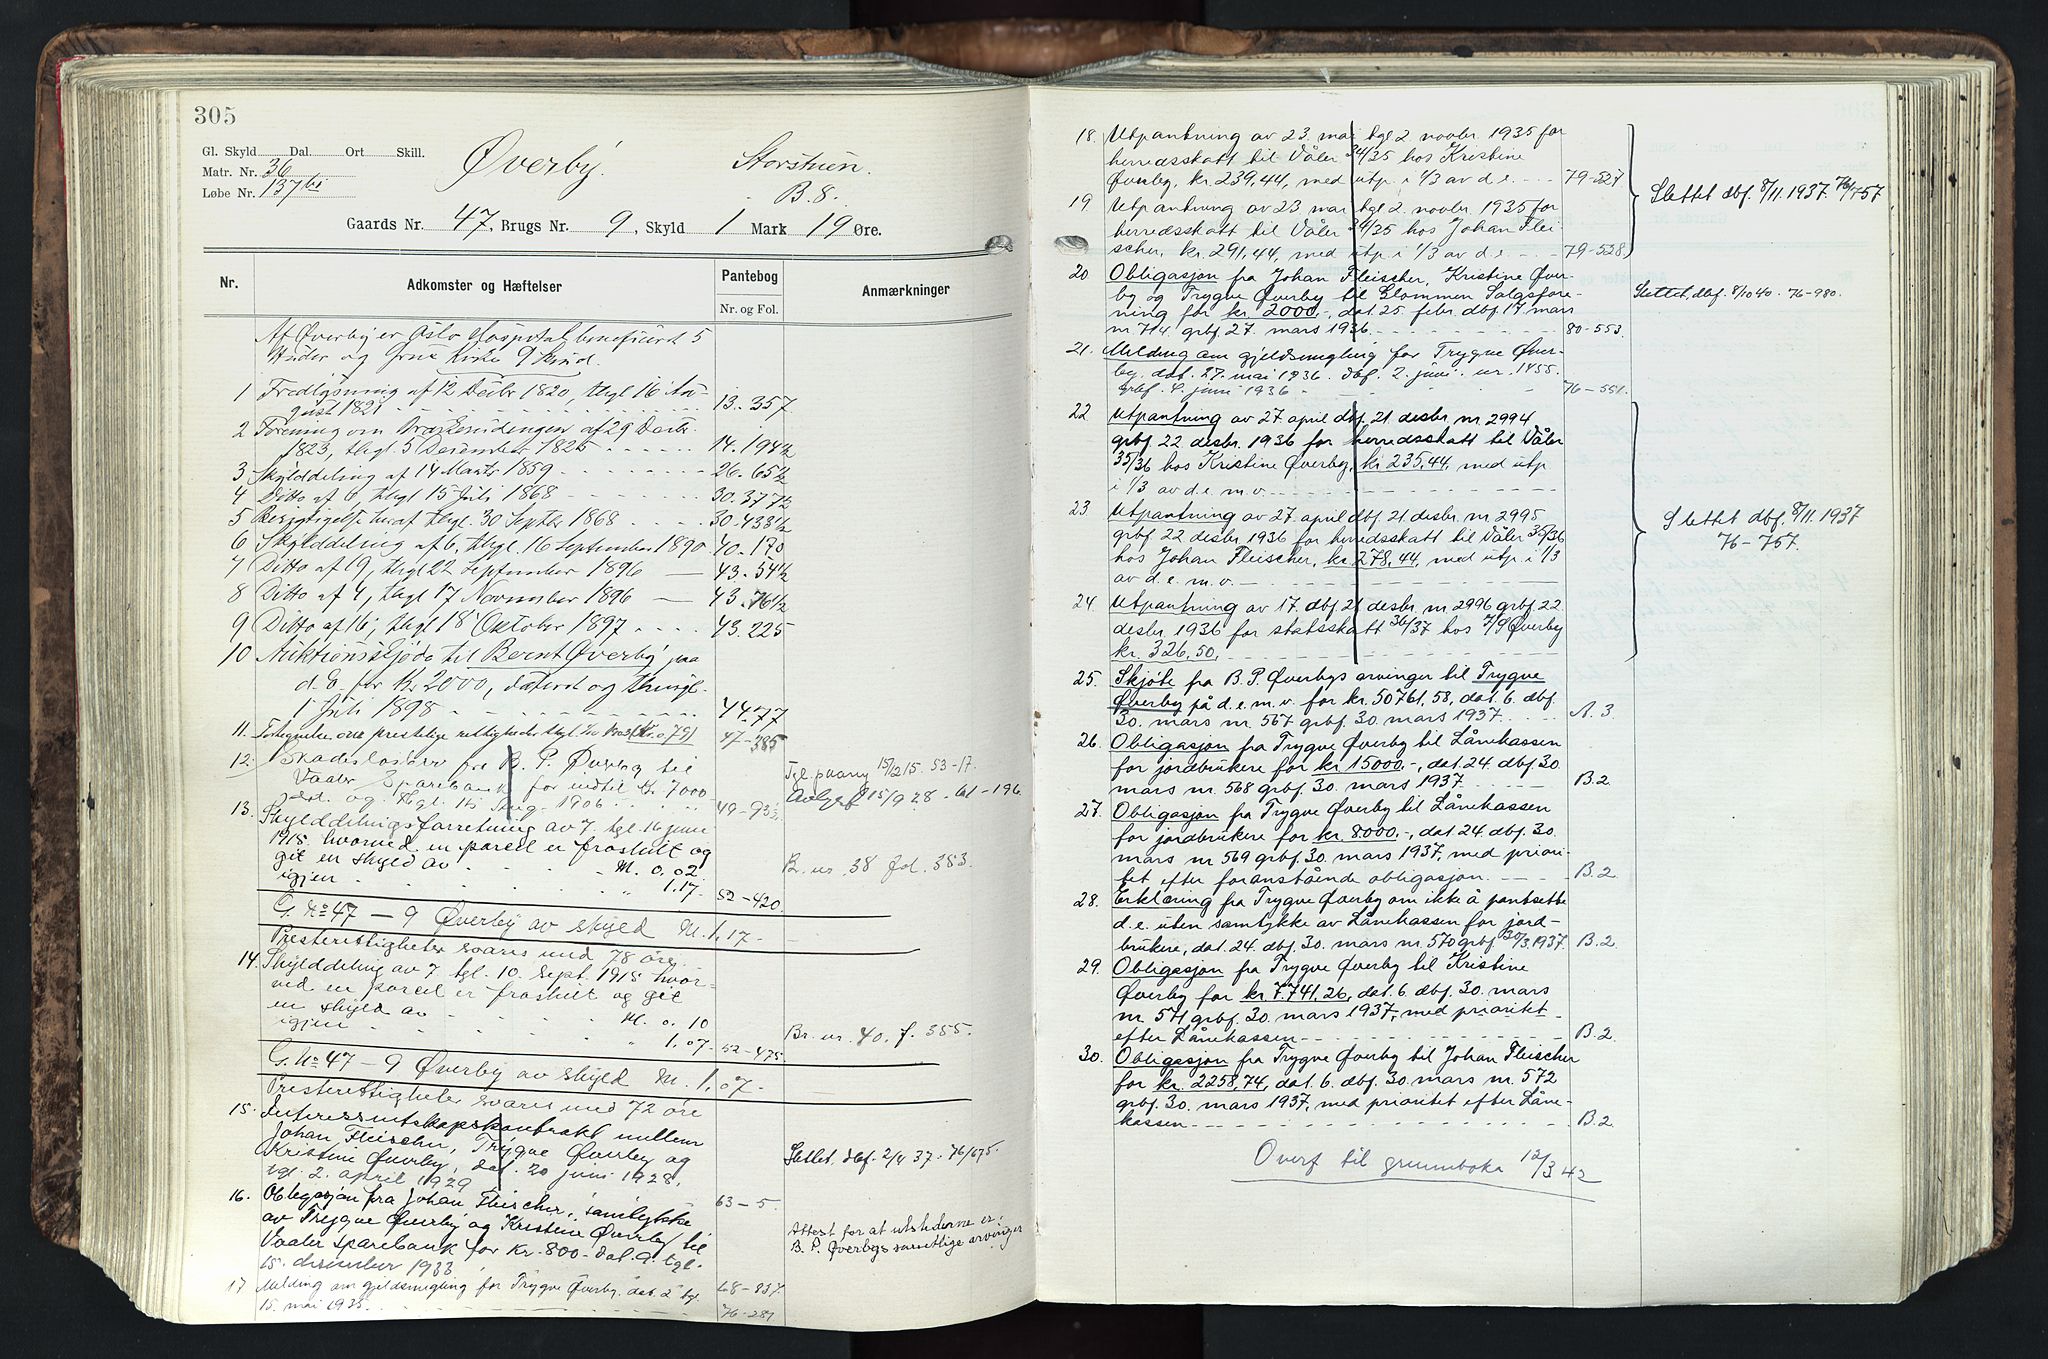 305
Gl. Skyld Dal. Ort Skill.
Matr. Nr. 36
Løbe Nr. 137 b1
Øverby. Storstuen.
B. 8.
Gaards Nr. 47, Brugs Nr. 9, Skyld 1 Mark 19 Øre.
Nr. Adkomster og Hæftelser Pantebog Nr. og Fol. Anmærkninger
Af Øverby er Oslo Hospital beneficeret 5
Huder og Grue Kirke 9 Skind.
1 Fredlysning af 12 Decbr 1820, thgl 16 Au-
gust 1821 13. 357
2 Forening om af 29 Decbr.
1823, thgl 5 December 1825 14. 194½
3 Skylddeling af 14 Marts 1859 26. 65½
4 Ditto af 6, thgl 15 Juli 1868 30. 377½
5 Berigtigelse heraf thgl. 30 Septbr 1868 30. 433½
6 Skylddeling af 6, thgl. 16 September 1890 40. 170
7 Ditto af 19, thgl 22 September 1896 43. 54½
8 Ditto af 4, thgl 17 November 1896 43. 76½
9 Ditto af 16, thgl 18 Oktober 1897 43. 225
10 Auktionsskjøde til Bernt Øverby paa
d. E. for Kr 2000, dateret og thingl.
1 Juli 1898 44. 77
11. over prestelige rettigheder thgl. (Kr. 0,79) 47-385
12. Skadesløsbrev fra B. P. Øverby til
Vaaler Sparebank for indtil Kr. 7000
dat. og thgl. 16 Aug. 1906 49-93½
Tgl. paany 15/2 15. 53-17.
Avlyst 15/9 28. 61-196
13. Skylddelingsforretning av 7 tgl. 16 juni
1915, hvorved en parcel er fraskilt og
git en skyld av M. 0.02
igjen " 1.17. 52-420
B. nr. 38 fol. 383.
G. No 47 - 9 Øverby av skyld M. 1,17.
Presterettigheter svares med 78 øre.
14. Skylddeling av 7 tgl. 10. sept. 1915 hvor-
ved en parcel er fraskilt og git
en skyld av M. 0.10
igjen " 1.07. 52-475
Br. nr. 40. f. 385.
G. No 47 - 9 Øverby av skyld M. 1,07-
Presterettigheter svares med 72 øre
15. Interessentskapskontrakt mellem
Johan Fleischer, Trygve Øverby og
Kristine Øverby, dat. 20 juni 1928,
tgl. 2. april 1929 63-5.
Slettet. dbf. 2/4 37. 76/675.
16. Obligasjon fra Johan Fleischer, samtykke
av Trygve Øverby og Kristine Øverby til
Vaaler sparebank for kr. 800.- dat. 9. tgl.
15. desember 1933 68-837.
Attest for at utstederne er
B. P. Øverbys samtlige arvinger
17 Melding om gjeldsmegling for Trygve Øverby. dat. 2 tgl.
15. mai 1935. 76-281.
18. Utpantning av 23. mai tgl 2. novbr. 1935 for
herredsskatt til Våler 34/35 hos Kristine
Øverby, kr. 239,44, med utp. i 1/3 av d.e. 79-527
19. Utpantning av 23 mai tgl 2. novbr. 1935 for
herredsskatt til Våler 34/35 hos Johan Flei-
scher, kr. 291,44, med utp. i 1/3 av d.e. 79-528
Slettet dbf. 8/11. 1937. 76/757
20 Obligasjon fra Johan Fleischer, Kristine Øver-
by og Trygve Øverby til Glommen Salgsfore-
ning for kr 2000.-, dat. 25. febr. dbf. 17 mars
nr 714 grbf. 27. mars 1936. 80-553.
Slettet, dbf. 8/10 40. 76-980.
21. Melding om gjeldsmegling for Trygve Øver-
by. dat. 27. mai 1936. dbf. 2. juni. nr. 1455.
grbf. 4. juni 1936 76-551.
22 Utpantning av 27. april dbf. 21 desbr. nr 2994
grbf. 22 desbr. 1936 for herredsskatt til Våler
35/36 hos Kristine Øverby, kr. 235,44, med utp
i 1/3 av d.e.m.v.
23 Utpantning av 27. april dbf. 21 desbr. nr 2995
grbf 22 desbr. 1936 for herredsskatt til Våler 35/36
hos Johan Fleischer, kr 278,44, med utp. i 1/3
av d.e.m.v.
24. Utpantning av 17. dbf. 21 desbr. nr 2996 grbf. 22
desbr. 1936 for statsskatt 36/37 hos T/9 Øverby
kr. 326,50.
Slettet dbf. 8/11. 1937
76-757.
25. Skjøte fra B. P. Øverbys arvinger til Trygve
Øverby på d.e.m.v. for kr. 50761,58, dat. 6. dbf.
30. mars nr. 567 grbf. 30. mars 1937. A. 3.
26. Obligasjon fra Trygve Øverby til Lånekassen
for jordbrukere for kr 15000.-, dat. 24. dbf. 30.
mars nr. 568 grbf. 30. mars 1937. B.2
27. Obligasjon fra Trygve Øverby til Lånekassen
for jordbrukere for kr 8000,-, dat. 24. dbf. 30.
mars nr 569 grbf. 30. mars 1937, med priori-
tet efter foranstående obligasjon. B.2.
28. Erklæring fra Trygve Øverby om ikke å pantsette
d.e. uten samtykke av Lånekassen for jord-
brukere, dat. 24. dbf. 30. mars nr. 570 grbf. 30/3.1937. B.2.
29. Obligasjon fra Trygve Øverby til Kristine
Øverby for kr 7.741,26, dat. 6. dbf. 30. mars
nr. 571 grbf. 30. mars 1937, med prioritet
efter Lånekassen B.2.
30. Obligasjon fra Trygve Øverby til Johan Fleischer
for kr. 2258,74, dat. 6. dbf. 30. mars nr. 572
grbf. 30. mars 1937, med prioritet efter Låne-
kassen B.2.
Overf til grunnboka 12/3 42